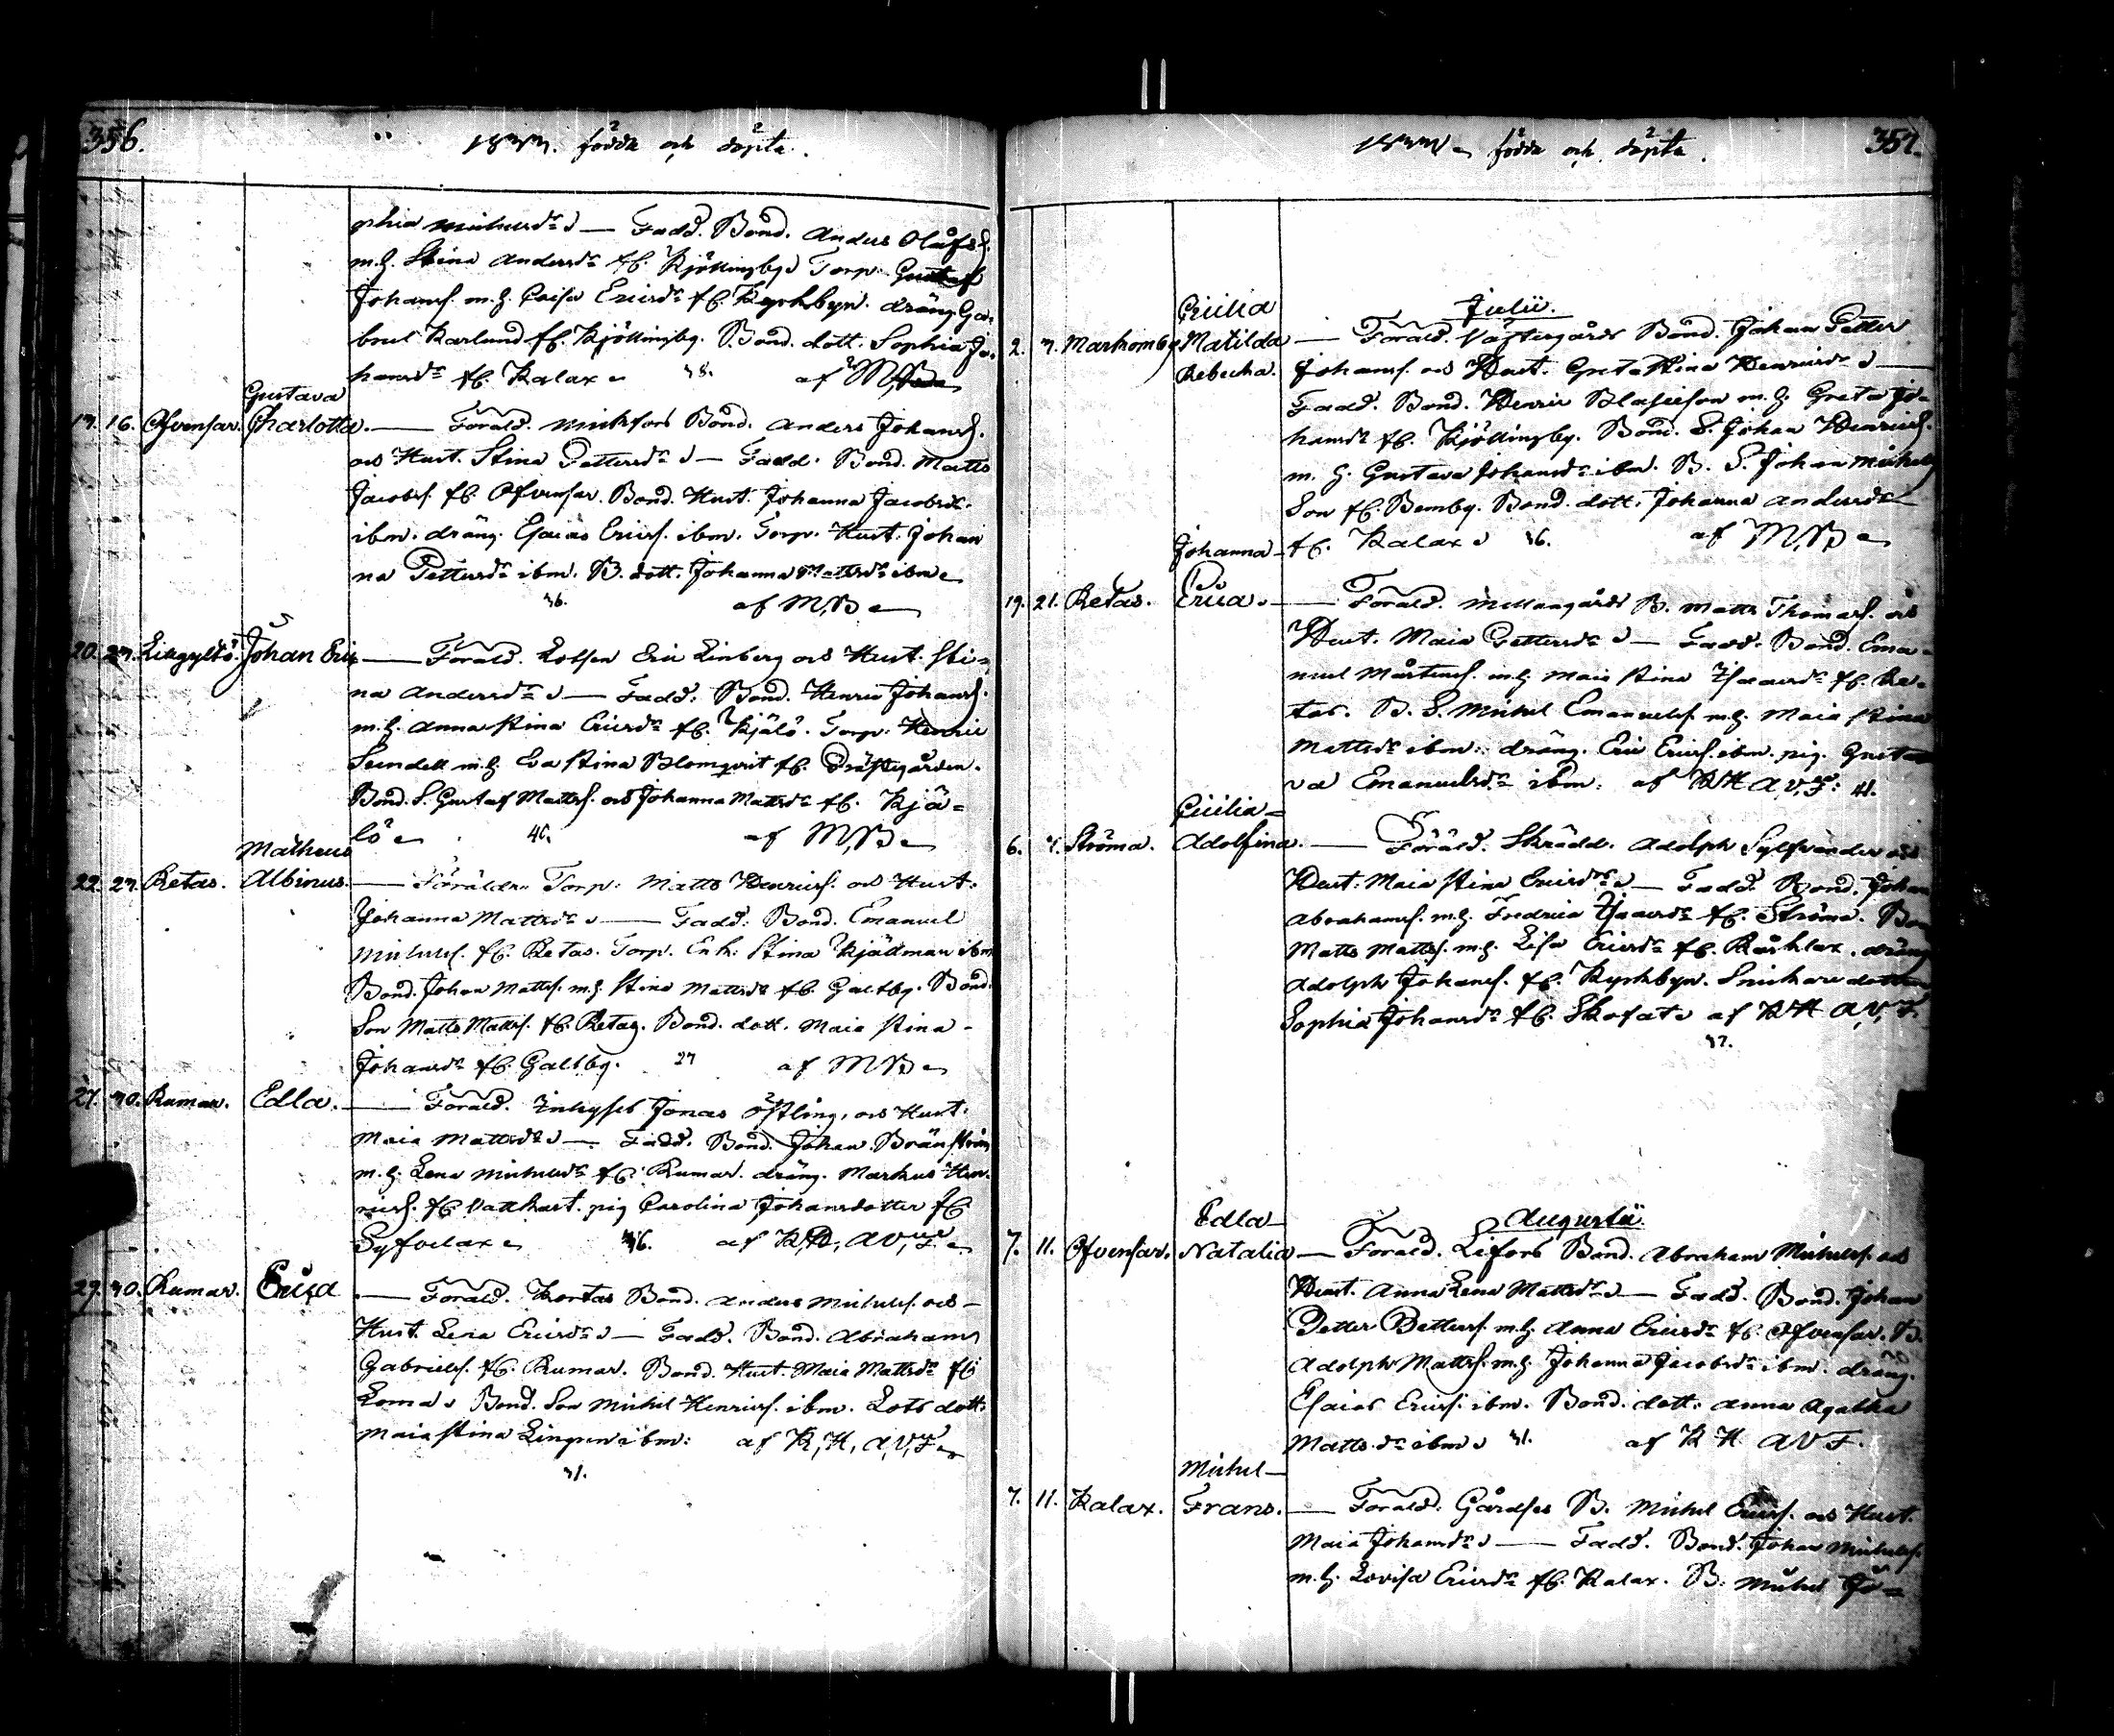 356.
1833. födde och döpte.
phia Michelsdr — Fadd. Bond. Anders Olofss.
m.h. Stina Andersdr fr. Kjöttingby Torp. Gustaf
Johanss. m.h. Caisa Ericsdr fr. Kyrkbyn. dräng Ga-
briel Karlund fr. Kjöttingby. Bond. dott. Sophia Jo-
hansdr fr. Kalax 38. af
Gustava
16. Öfvensar. Charlotta. — Föräld. Bond. Anders Johanss.
och Hust. Stina Pettersdr — Fadd. Bond. Matts
Jacobss. fr. Öfvensar. Bond. Hust. Johanna Jacobsdr.
ibm. dräng. Esaias Ericss. ibm. Torp. Hust. Johan
na Pettersdr ibm. B. dott. Johanna Mattsdr ibm
36. af M,B
20. 23. Johan Eric — Föräld. Lotsen Eric Linberg och Hust. Sti-
na Andersdr — Fadd. Bond. Henric Johanss.
m.h. Anna Stina Ericsdr fr. Kjälö. Torp. Henric
Sundell m.h. Eva Stina Blomqvist fr. Prästgården.
Bond. S. Gustaf Mattss. och Johanna Mattsdr fr. Kjä-
lö 40. af M,B
Matheus
22. 23. Retas. Albinus. — Föräldr. Torp. Matts Henricss. och Hust.
Johanna Mattsdr — Fadd. Bond. Emanuel
Michelss. fr. Retas. Torp. Enk. Stina Kjällman ibm
Bond. Johan Mattss. m.h. Stina Mattsdr fr. Galtby. Bond.
Son Matts Mattss. fr. Retas. Bond. dott. Maia Stina
Johansdr fr. Galtby. 27 af M B
27. 30. Rumar. Edla. — Föräld. Inhyses Jonas Östling, och Hust.
Maia Mattsdr — Fadd. Bond. Johan Bränström
m.h. Lena Michelsdr fr. Rumar. dräng. Markus Hen-
ricss. fr. Vattkast. pig Carolina Johansdotter fr
Syfvelax 36. af K,H, A,V,F.
29. 30. Rumar. Erica — Föräld. Kortas Bond. Anders Michelss. och
Hust. Lena Ericsdr — Fadd. Bond. Abraham
Gabrielss. fr. Rumar. Bond. Hust. Maia Mattsdr fr
Loma Bond. Son Michel Henricss. ibm. Lots dott.
Maia Stina Lingren ibm: af K,H, A,V,F
31.
1833 födde och döpte.
357.
Julii.
Cecilia
2. 7. Markomby Matilda — Föräld. Västergårds Bond. Johan Petter
Rebecka. Johanss. och Hust. Greta Stina Henricsdr —
Fadd. Bond. Henric Blasieson m.h. Greta Jo-
hansdr fr. Kjöttingby. Bond. S. Johan Henricss.
m.h. Gustava Johansdr ibm. B. S. Johan Michels
Son fr. Bemby. Bond. dott. Johanna Andersdr
fr. Kalax 36. af M,B
Johanna
19. 21. Retas. Erica. — Föräld. Mellangårds B. Matts Thomass. och
Hust. Maia Pettersdr — Fadd. Bond. Ema-
nuel Mårtenss. m.h. Maia Stina Isaacsdr fr. Re-
tas. B. S. Michel Emanuelss. m.h. Maia Stina
Mattsdr ibm. dräng. Eric Ericss. ibm. pig. Gusta
va Emanuelsdr ibm. af K H A,V,F: 41.
Cicilia
6. 7. Ströma. Adolfina. — Föräld. Skrädd. Adolph Sylfvander och
Hust. Maia Stina Ericsdr — Fadd. Bond. Johan
Abrahamss. m.h. Fredrica Isaacsdr fr. Ströma. Bon
Matts Mattss. m.h. Lisa Ericsdr fr. Kårklax. dräng
Adolph Johanss. fr. Kyrkbyn. Snickare dotter
Sophia Johansdr fr. Skofate af K H A,V,F.
37.
Augustii.
Edla
7. 11. Öfvensar. Natalia — Föräld. Lifors Bond. Abraham Michelss. och
Hust. Anna Lena Mattsdr — Fadd. Bond. Johan
Petter Petterss. m.h. Anna Ericsdr fr. Öfvensar. B.
Adolph Mattss. m.h. Johanna Jacobsdr ibm. dräng.
Esaias Ericss. ibm. Bond. dott. Anna Agatha
Mattsdr ibm 31. af K H A V F.
Michel
7. 11. Kalax. Frans. — Föräld. Gårdses B. Michel Ericss. och Hust.
Maia Johansdr — Fadd. Bond. Johan Michelss.
m.h. Lovisa Ericsdr fr. Kalax. B. Michel Jo-